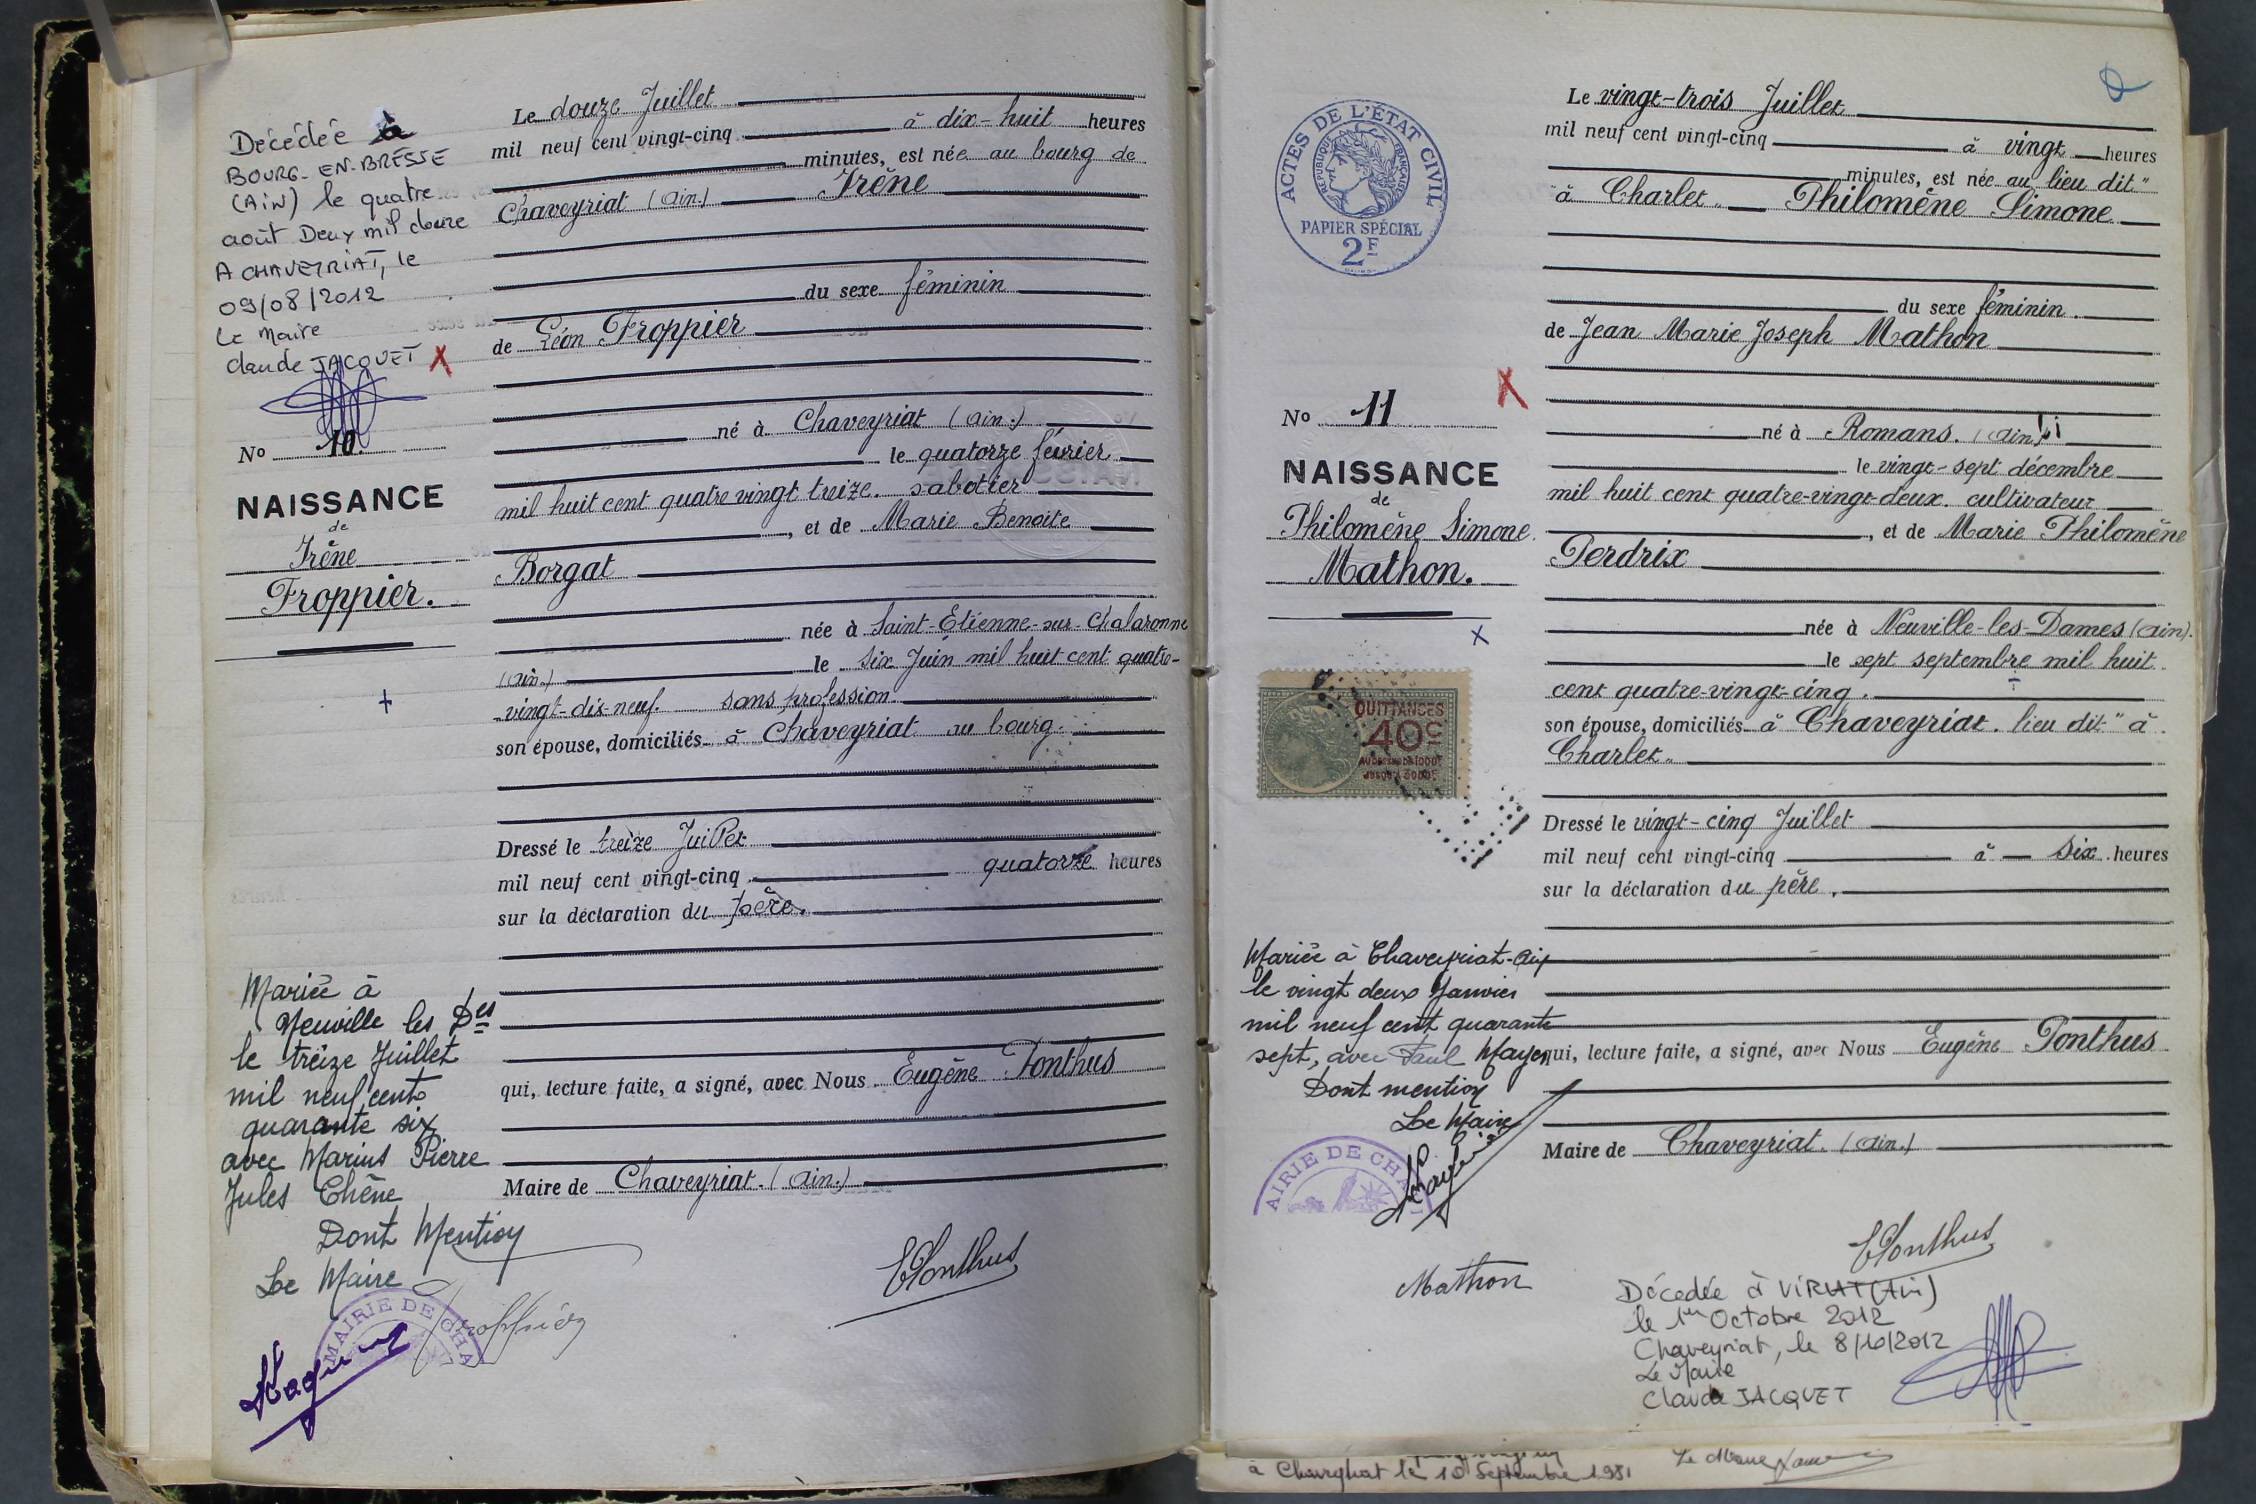 Décédée à
BOURG-EN-BRESSE
(AiN) le quatre
août Deux mil douze
A CHAVEYRIAT, le
09/08/2012
Le Maire
Claude JACQUET
No 10.
NAISSANCE
de
Irène
Froppier.
Mariée à
Neuville les Des
le treize Juillet
mil neuf cent
quarante six
avec Marius Pierre
Jules Chêne
Dont Mention
Le Maire
MAIRIE DE CHA
Le douze Juillet
mil neuf cent vingt-cinq à dix-huit heures
minutes, est née au bourg de
Chaveyriat (Ain.) Irène
du sexe féminin
de Léon Froppier
né à Chaveyriat (Ain.)
le quatorze février
mil huit cent quatre vingt treize. sabotier
, et de Marie Benoite
Borgat
née à Saint-Etienne-sur-Chalaronne
(Ain.) le six Juin mil huit cent quatre-
vingt-dix-neuf. sans profession
son épouse, domiciliés à Chaveyriat au bourg.
Dressé le treize Juillet
mil neuf cent vingt-cinq quatorze heures
sur la déclaration du père.
qui, lecture faite, a signé, avec Nous Eugène Ponthus
Maire de Chaveyriat. (Ain.)
EPonthus
Froppier
ACTES DE L'ÉTAT CIVIL
RÉPUBLIQUE FRANÇAISE
PAPIER SPÉCIAL
2F
No 11
NAISSANCE
de
Philomène Simone.
Mathon.
QUITTANCES
40c
Mariée à Chaveyriat-Ain
le vingt deux Janvier
mil neuf cent quarante
sept, avec Paul Mayen
Dont mention
Le Maire
AIRIE DE CHA
Le vingt-trois Juillet
mil neuf cent vingt-cinq à vingt heures
minutes, est née au lieu dit "
à Charlet. Philomène Simone
du sexe féminin.
de Jean Marie Joseph Mathon
né à Romans. (Ain)
le vingt-sept décembre
mil huit cent quatre-vingt-deux. cultivateur
, et de Marie Philomène
Perdrix
née à Neuville-les-Dames (Ain).
le sept septembre mil huit
cent quatre-vingt-cinq.
son épouse, domiciliés à Chaveyriat. lieu dit " à
Charlet.
Dressé le vingt-cinq Juillet
mil neuf cent vingt-cinq à six heures
sur la déclaration du père.
qui, lecture faite, a signé, avec Nous Eugène Ponthus
Maire de Chaveyriat. (Ain.)
EPonthus
Mathon
Décédée à VIRIAT (Ain)
le 1er Octobre 2012
Chaveyriat, le 8/10/2012
Le Maire
Claude JACQUET
le 10 Septembre 1981
Le Maire